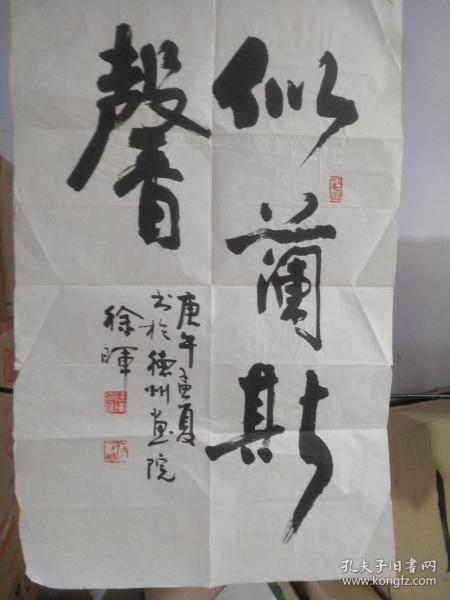 似蘭斯
馨
庚午孟夏
书於德州画院
徐暉
孔夫子旧书网
www.kongfz.com